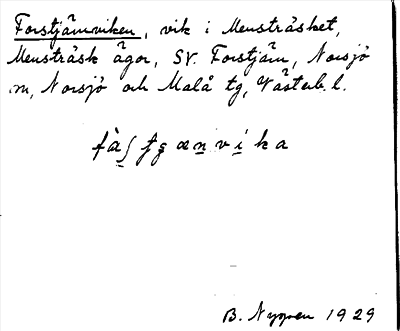 Forstjärnviken, vik i Mensträsket,
Mensträsk ägor, SV. Forstjärn, Norsjö
sn, Norsjö och Malå tg, Västerb. l.
B. Nygren 1929